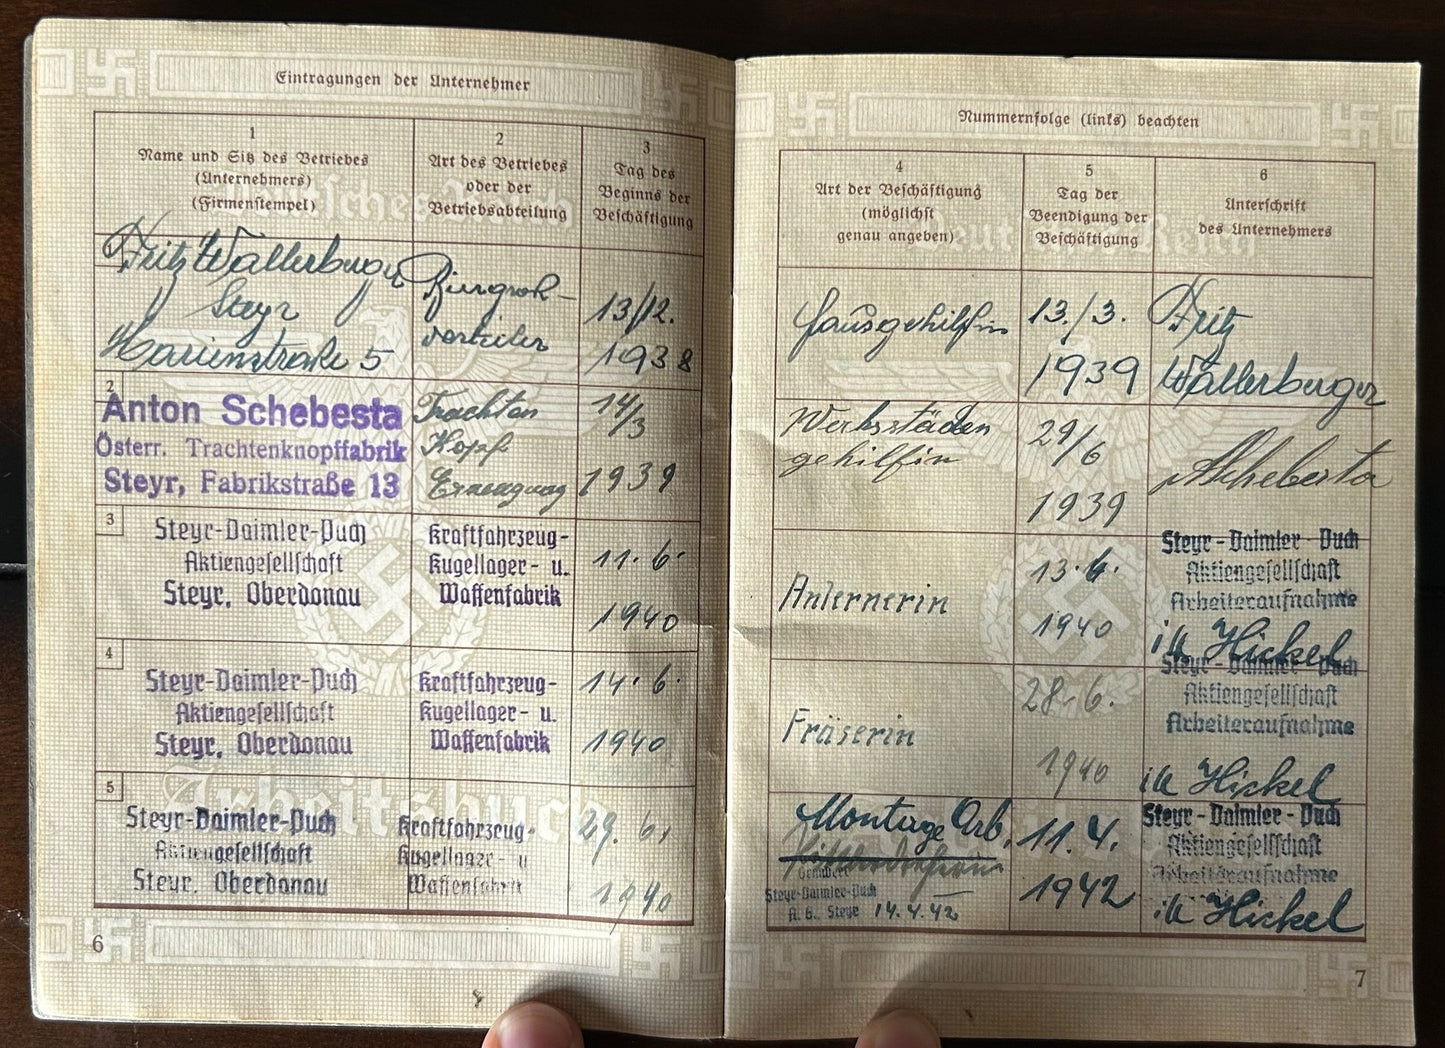 Eintragungen der Unternehmer
1
Name und Sitz des Betriebes
(Unternehmers)
(Firmenstempel)
2
Art des Betriebes
oder der
Betriebsabteilung
3
Tag des
Beginns der
Beschäftigung
Fritz Wallerburger
Steyr
5
13/12.
1938
2
Anton Schebesta
Österr. Trachtenknopffabrik
Steyr, Fabrikstraße 13
Trachten
Knopf
Erzeugung
14/3
1939
3
Steyr-Daimler-Puch
Aktiengesellschaft
Steyr, Oberdonau
Kraftfahrzeug-
Kugellager- u.
Waffenfabrik
11.6.
1940
4
Steyr-Daimler-Puch
Aktiengesellschaft
Steyr, Oberdonau
Kraftfahrzeug-
Kugellager- u.
Waffenfabrik
14.6.
1940
5
Steyr-Daimler-Puch
Aktiengesellschaft
Steyr, Oberdonau
Kraftfahrzeug-
Kugellager- u
Waffenfabrik
29.6.
1940
Deutsches Reich
Arbeitsbuch
6
Nummernfolge (links) beachten
4
Art der Beschäftigung
(möglichst
genau angeben)
5
Tag der
Beendigung der
Beschäftigung
6
Unterschrift
des Unternehmers
Hausgehilfin
13./3.
1939
Fritz
Wallerburger
gehilfin
29/6
1939
Schebesta
Anlernerin
13.6.
1940
Steyr-Daimler-Puch
Aktiengesellschaft
Arbeiteraufnahme
Hickel
Fräserin
28.6.
1940
Steyr-Daimler-Puch
Aktiengesellschaft
Arbeiteraufnahme
Hickel
Montage Arb.
Geändert
Steyr-Daimler-Puch
A. G., Steyr 14.4.42
11.4.
1942
Steyr-Daimler-Puch
Aktiengesellschaft
Arbeiteraufnahme
Hickel
Deutsches Reich
7